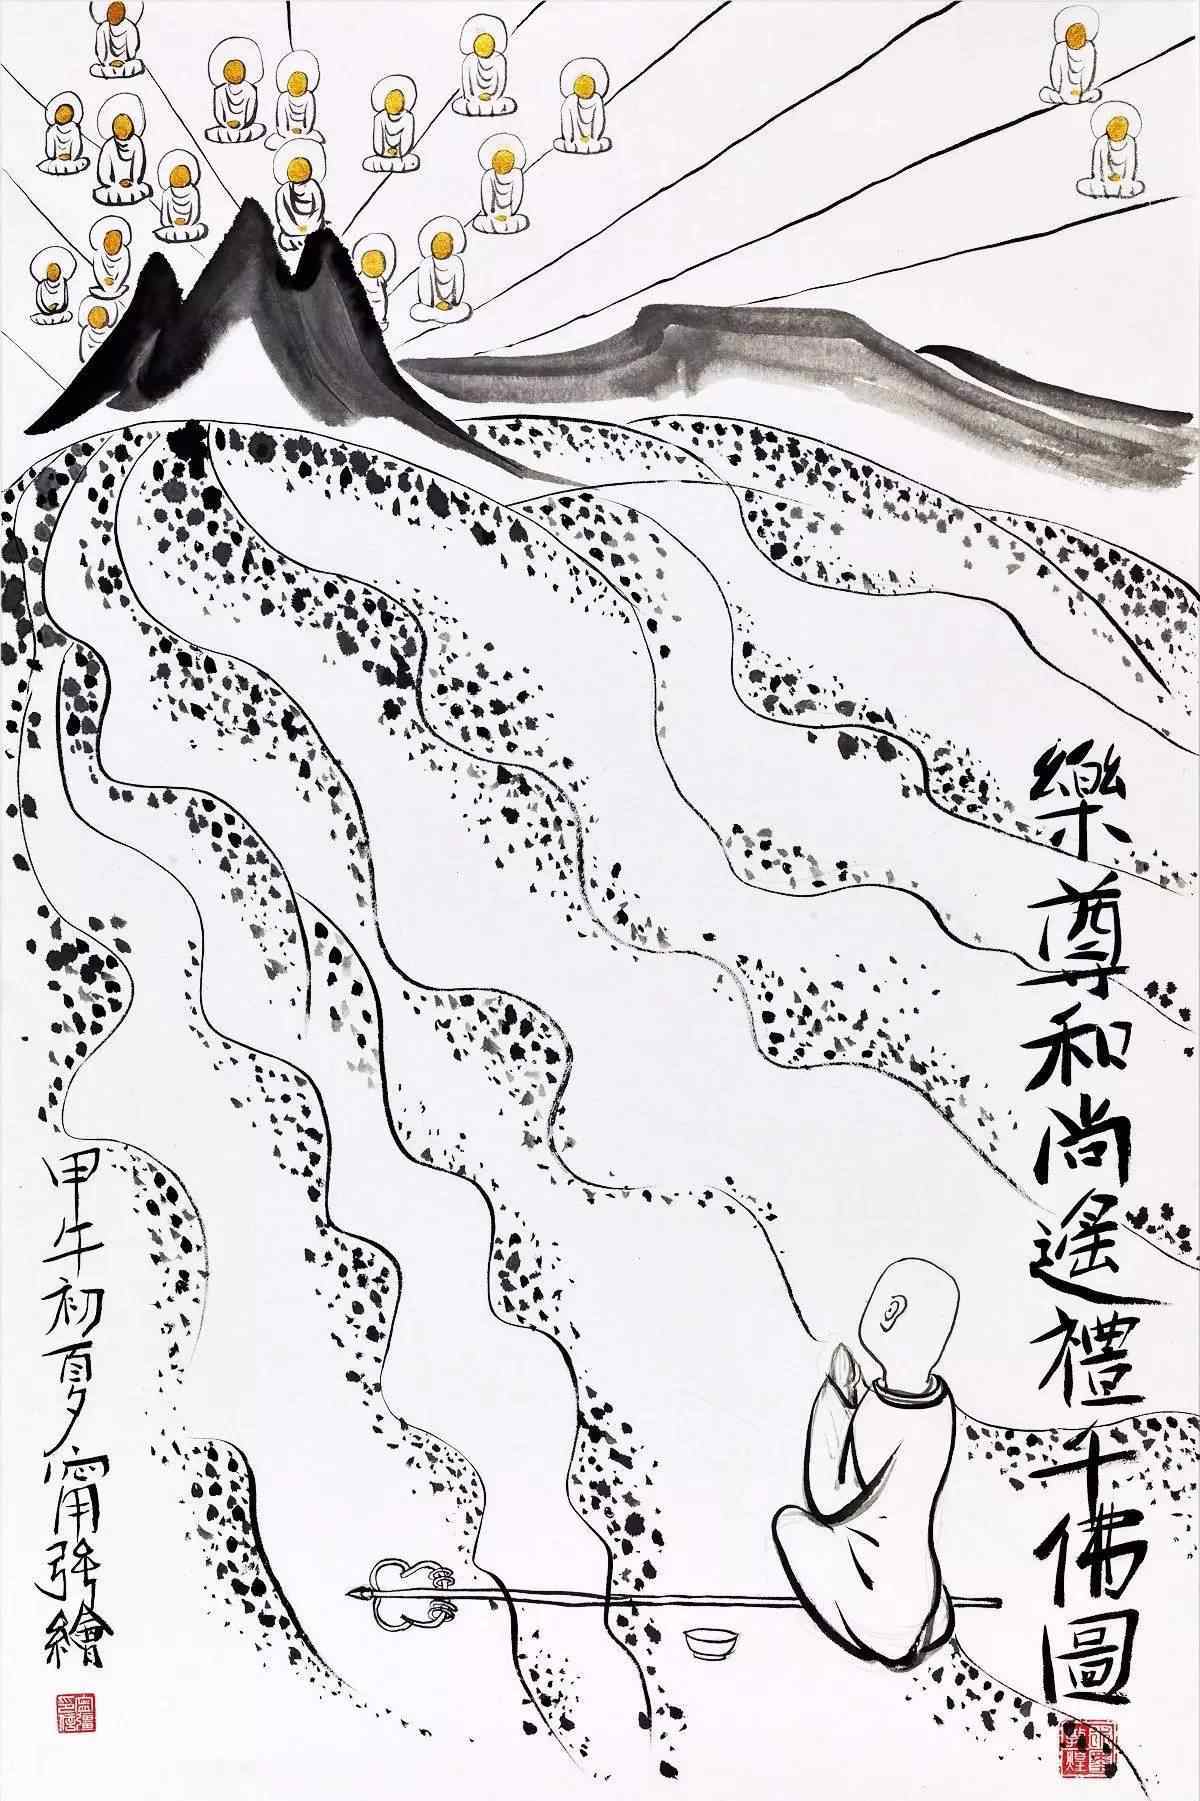 樂尊和尚遙禮千佛圖
甲午初夏甯強繪